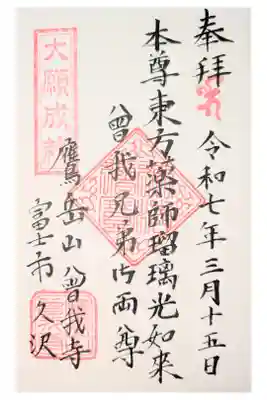 奉拝
令和七年三月十五日
本尊東方薬師瑠璃光如来
曽我兄弟御両尊
大願成就
鷹岳山曽我寺
富士市久沢